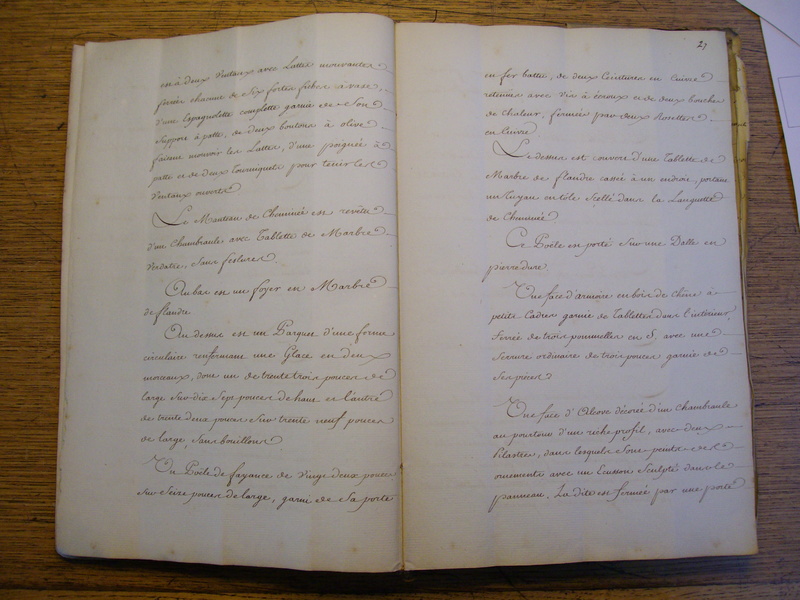 en à deux Ventaux avec Lattes mouvantes
ferrée chacune de Six fortes fiches à vase
d'une Espagnolette complette garnie de Son
Support à patte, de deux boutons à olive
faisant mouvoir les Lattes, d'une poignée à
patte et de deux Tourniquets pour tenir les
Ventaux ouverts
Le Manteau de Cheminée est revêtu
d'un Chambranle avec Tablette de Marbre
Verdatre, Sans feslures
Au bas est un foyer en Marbre
de flandre
Au dessus est un Parquet d'une forme
circulaire renfermant une Glace en deux
morceaux, dont un de trente trois pouces de
large Sur dix Sept pouces de haut et l'autre
de trente deux pouces Sur trente neuf pouces
de large, Sans bouillons
Un Poële de fayance de Vingt deux pouces
Sur Seize pouces de large, garni de Sa porte
27
en fer battu, de deux Ceintures en Cuivre
retenues avec Vis à écrous et de deux bouches
de Chaleur, fermées par deux Rosettes
en Cuivre
Le dessus est couvert d'une Tablette de
Marbre de flandre cassée à un endroit, portant
un Tuyau en tôle Scellé dans la Languette
de Cheminée
Ce Poële est porté Sur une Dalle en
pierre dure.
Une face d'armoire en bois de Chêne à
petits Cadres garnie de Tablettes dans l'intérieur
ferrée de trois pommelles en S, avec une
Serrure ordinaire de trois pouces garnie de
Ses pièces
Une face d'Alcove décorée d'un Chambranle
au pourtour d'un riche profil, avec deux
Pilastres, dans lesquels Sont peints des
ornements avec un Ecusson Sculpté dans le
panneau. La dite est fermée par une porte